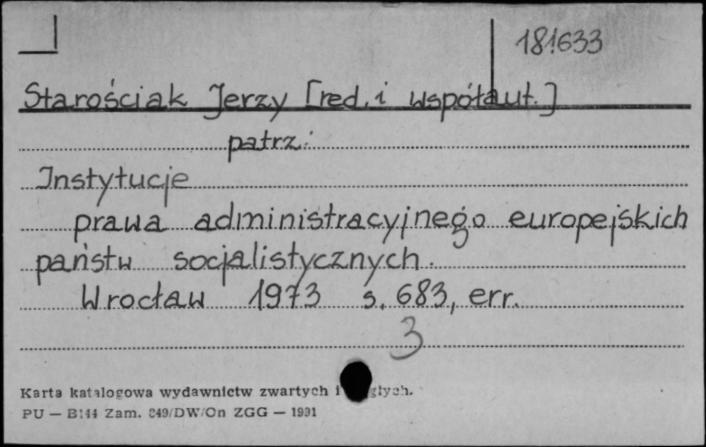 181633
Starościak Jerzy [red. i współaut.]
patrz:
Instytucje
prawa administracyjnego europejskich
państw socjalistycznych.
Wrocław 1973 s. 683, err.
3
Karta katalogowa wydawnictw zwartych i
PU — B144 Zam. 849/DW/On ZGG — 1991